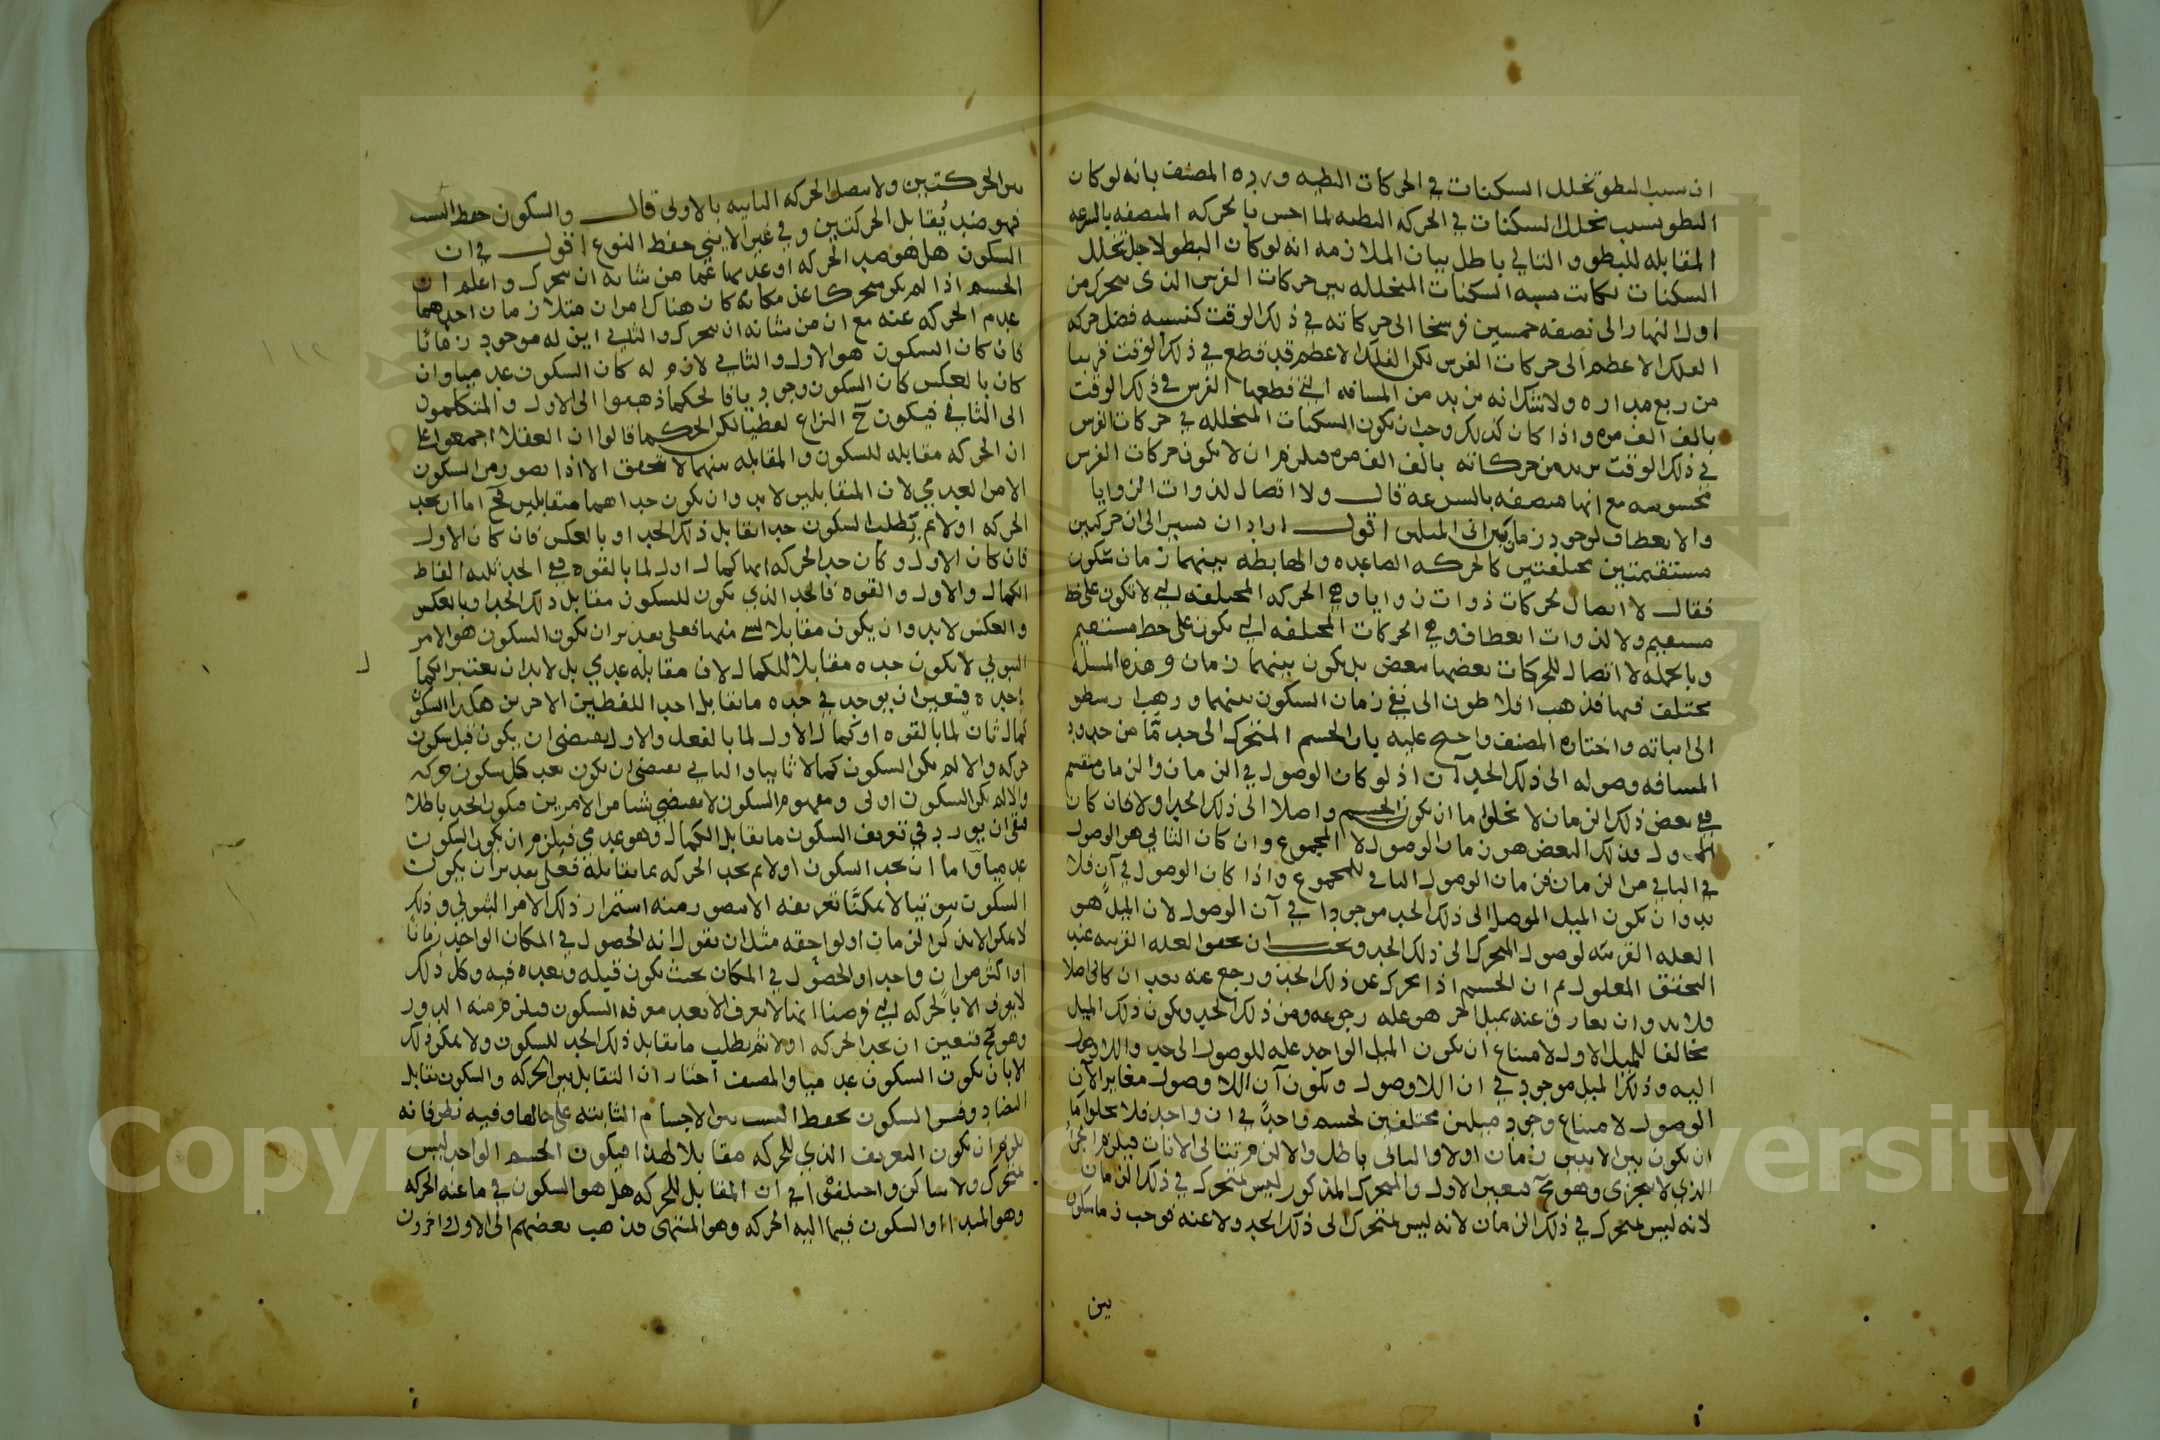 ان سبب البطو تخلل السكنات في الحركات البطيه ورده المصنف بانه لو كان
البطو بسبب تخلل السكنات في الحركه البطيه لما احس بالحركه المتصفه بالسرعه
المقابله للبطو والتالي باطل بيان الملازمه انه لو كان البطو لاجل تخلل
السكنات لكانت نسبه السكنات المتخلله بين حركات الفرس الذي تتحرك من
اول النهار الى نصفه خمسين فرسخا الى حركاته في ذلك الوقت كنسبه فضل حركه
الفلك الاعظم الى حركات الفرس لكن الفلك الاعظم قد قطع في ذلك الوقت قريبا
من ربع مداره ولا شك انه يزيد من المسافه التي قطعها الفرس في ذلك الوقت
بالف الف مره واذا كان كذلك وجب ان تكون السكنات المتخلله في حركات الفرس
في ذلك الوقت يزيد من حركاته بالف الف مره فيلزم ان لا تكون حركات الفرس
محسوسه مع انها متصفه بالسرعه قال ولا اتصال لذوات الزوايا
والانعطاف لوجود زمان بين اني الميلين اقول اراد ان يشير الى ان حركتين
مستقيمتين مختلفتين كالحركه الصاعده والهابطه بينهما زمان سكون
فقال لا اتصال لحركات ذوات زوايا وهي الحركه المختلفه التي لا تكون على خط
مستقيم ولا لذوات انعطاف وهي الحركات المختلفه التي تكون على خط مستقيم
وبالجمله لا اتصال للحركات بعضها ببعض بل يكون بينهما زمان وهذه المسله
مختلف فيها فذهب افلاطون الى نفي زمان السكون بينهما وذهب ارسطو
الى اثباته واختاره المصنف واحتج عليه بان الجسم المتحرك الى حد ما من حدود
المسافه وصوله الى ذلك الحد آن اذ لو كان الوصول في الزمان والزمان منقسم
ففي بعض ذلك الزمان لا يخلوا ما ان يكون الجسم واصلا الى ذلك الحد او لا فان كان
الاول فذلك البعض هو زمان الوصول لا المجموع وان كان الثاني هو الوصول
في الباقي من الزمان فزمان الوصول الباقي لا المجموع واذا كان الوصول في آن فلا
بد وان يكون الميل الموصل الى ذلك الحد موجودا في آن الوصول لان الميل هو
العله القريبه لوصول المتحرك الى ذلك الحد ويجب ان تحقق العله القريبه عند
التحقق المعلول ثم ان الجسم اذا تحرك عن ذلك الحد ورجع عنه بعد ان كان واصلا
فلا بد وان يفارق عنه بميل اخر هو عله رجوعه ومن ذلك الحد ويكون ذلك الميل
مخالفا للميل الاول لامتناع ان يكون الميل الواحد عله للوصول الى حد واللاوصول
اليه وذلك الميل موجود في ان اللاوصول ويكون آن اللاوصول مغايرا لآن
الوصول لامتناع وجود ميلين مختلفين لجسم واحد في ان واحد فلا يخلوا ما
ان يكون بين الانين زمان اولا والثاني باطل والا لزم تتالي الانات فيلزم الجزء
الذي لا يتجزى وهو مح فتعين الاول والمتحرك المذكور ليس بمتحرك في ذلك الزمان
لانه ليس بمتحرك في ذلك الزمان لانه ليس بمتحرك الى ذلك الحد ولا عنه فوجب زمان سكون
بين
بين الحركتين ولا تتصل الحركه الثانيه بالاولى قال والسكون حفظ النسب
فهو ضد يُقابل الحركتين وفي غير الاين حفظ النوع اقول في ان
السكون هل هو ضد الحركه او عدمها عما من شانه ان يتحرك واعلم ان
الجسم اذا لم يكن متحركا عن مكانه كان هناك امران متلازمان احدهما
عدم الحركه عنه مع ان من شانه ان يتحرك والثاني اين له موجود زمانا
فان كان السكون هو الاول والثاني لازم له كان السكون عدميا وان
كان بالعكس كان السكون وجوديا فالحكما ذهبوا الى الاول والمتكلمون
الى الثاني فيكون ح النزاع لفظيا لكن الحكما قالوا ان العقلا اجمعوا على
ان الحركه مقابله للسكون والمقابله بينهما لا تتحقق الا اذا تصور من السكون
الامر العدمي لان المتقابلين لابد وان يكون حداهما متقابلين فح اما ان نحد
الحركه اولا ثم نطلب للسكون حدا يقابل ذلك الحد او بالعكس فان كان الاول
فان كان الاول وكان حد الحركه انها كمال اول لما بالقوه ففي الحد ثلثه الفاظ
الكمال والاول والقوه فالحد الذي يكون للسكون مقابل ذلك الحد او بالعكس
والعكس لابد وان يكون مقابلا لشي منها فعلى تقدير ان يكون السكون هو الامر
الثبوتي لا يكون حده مقابلا للكمال لان مقابله عدمي بل لابد ان يعتبر الكمال
في حده فتعين ان يوخذ في حده ما يقابل احد اللفظين الاخرين هكذا السكون
كمال ثان لما بالقوه او كمال الاول لما بالفعل والاول يقتضي ان يكون قبل سكون
حركه والا لم يكن السكون كمالا ثانيا والثاني يقتضي ان يكون بعد كل سكون حركه
والا لم يكن السكون اولى ومفهوم السكون لا يقتضي شيا من الامرين فيكون الحد باطلا
فبقي ان يورد في تعريف السكون ما يقابل الكمال وهو عدمي فيلزم ان يكون السكون
عدميا واما ان نحد السكون اولا ثم نحد الحركه بما يقابله فعلى تقدير ان يكون
السكون ثبوتيا لا يمكننا تعريفه الا بتصور منه استمرار ذلك الامر الثبوتي وذلك
لا يمكن الا بذكر الزمان او لواحقه مثل ان يقول انه الحصول في المكان الواحد زمانا
او اكثر من ان واحد او الحصول في المكان بحيث يكون قبله وبعده فيه وكل ذلك
لا يعرف الا بالحركه التي فرضنا انها لا تعرف الا بعد معرفه السكون فيلزم منه الدور
وهو مح فتعين ان نحد الحركه اولا ثم نطلب ما يقابل ذلك الحد للسكون ولا يمكن ذلك
الا بان يكون السكون عدميا والمصنف اختار ان التقابل بين الحركه والسكون تقابل
التضاد وفسر السكون بحفظ النسب بين الاجسام الثابته على حالها وفيه نظر فانه
يلزم ان يكون التعريف الذي للحركه مقابلا لهذا فيكون الجسم الواحد ليس
متحرك ولا ساكن واختلفوا في ان المقابل للحركه هل هو السكون في ما عنه الحركه
وهو المبدا او السكون فيما اليه الحركه وهو المنتهى فذهب بعضهم الى الاول واخرون
Copyright © King Saud University